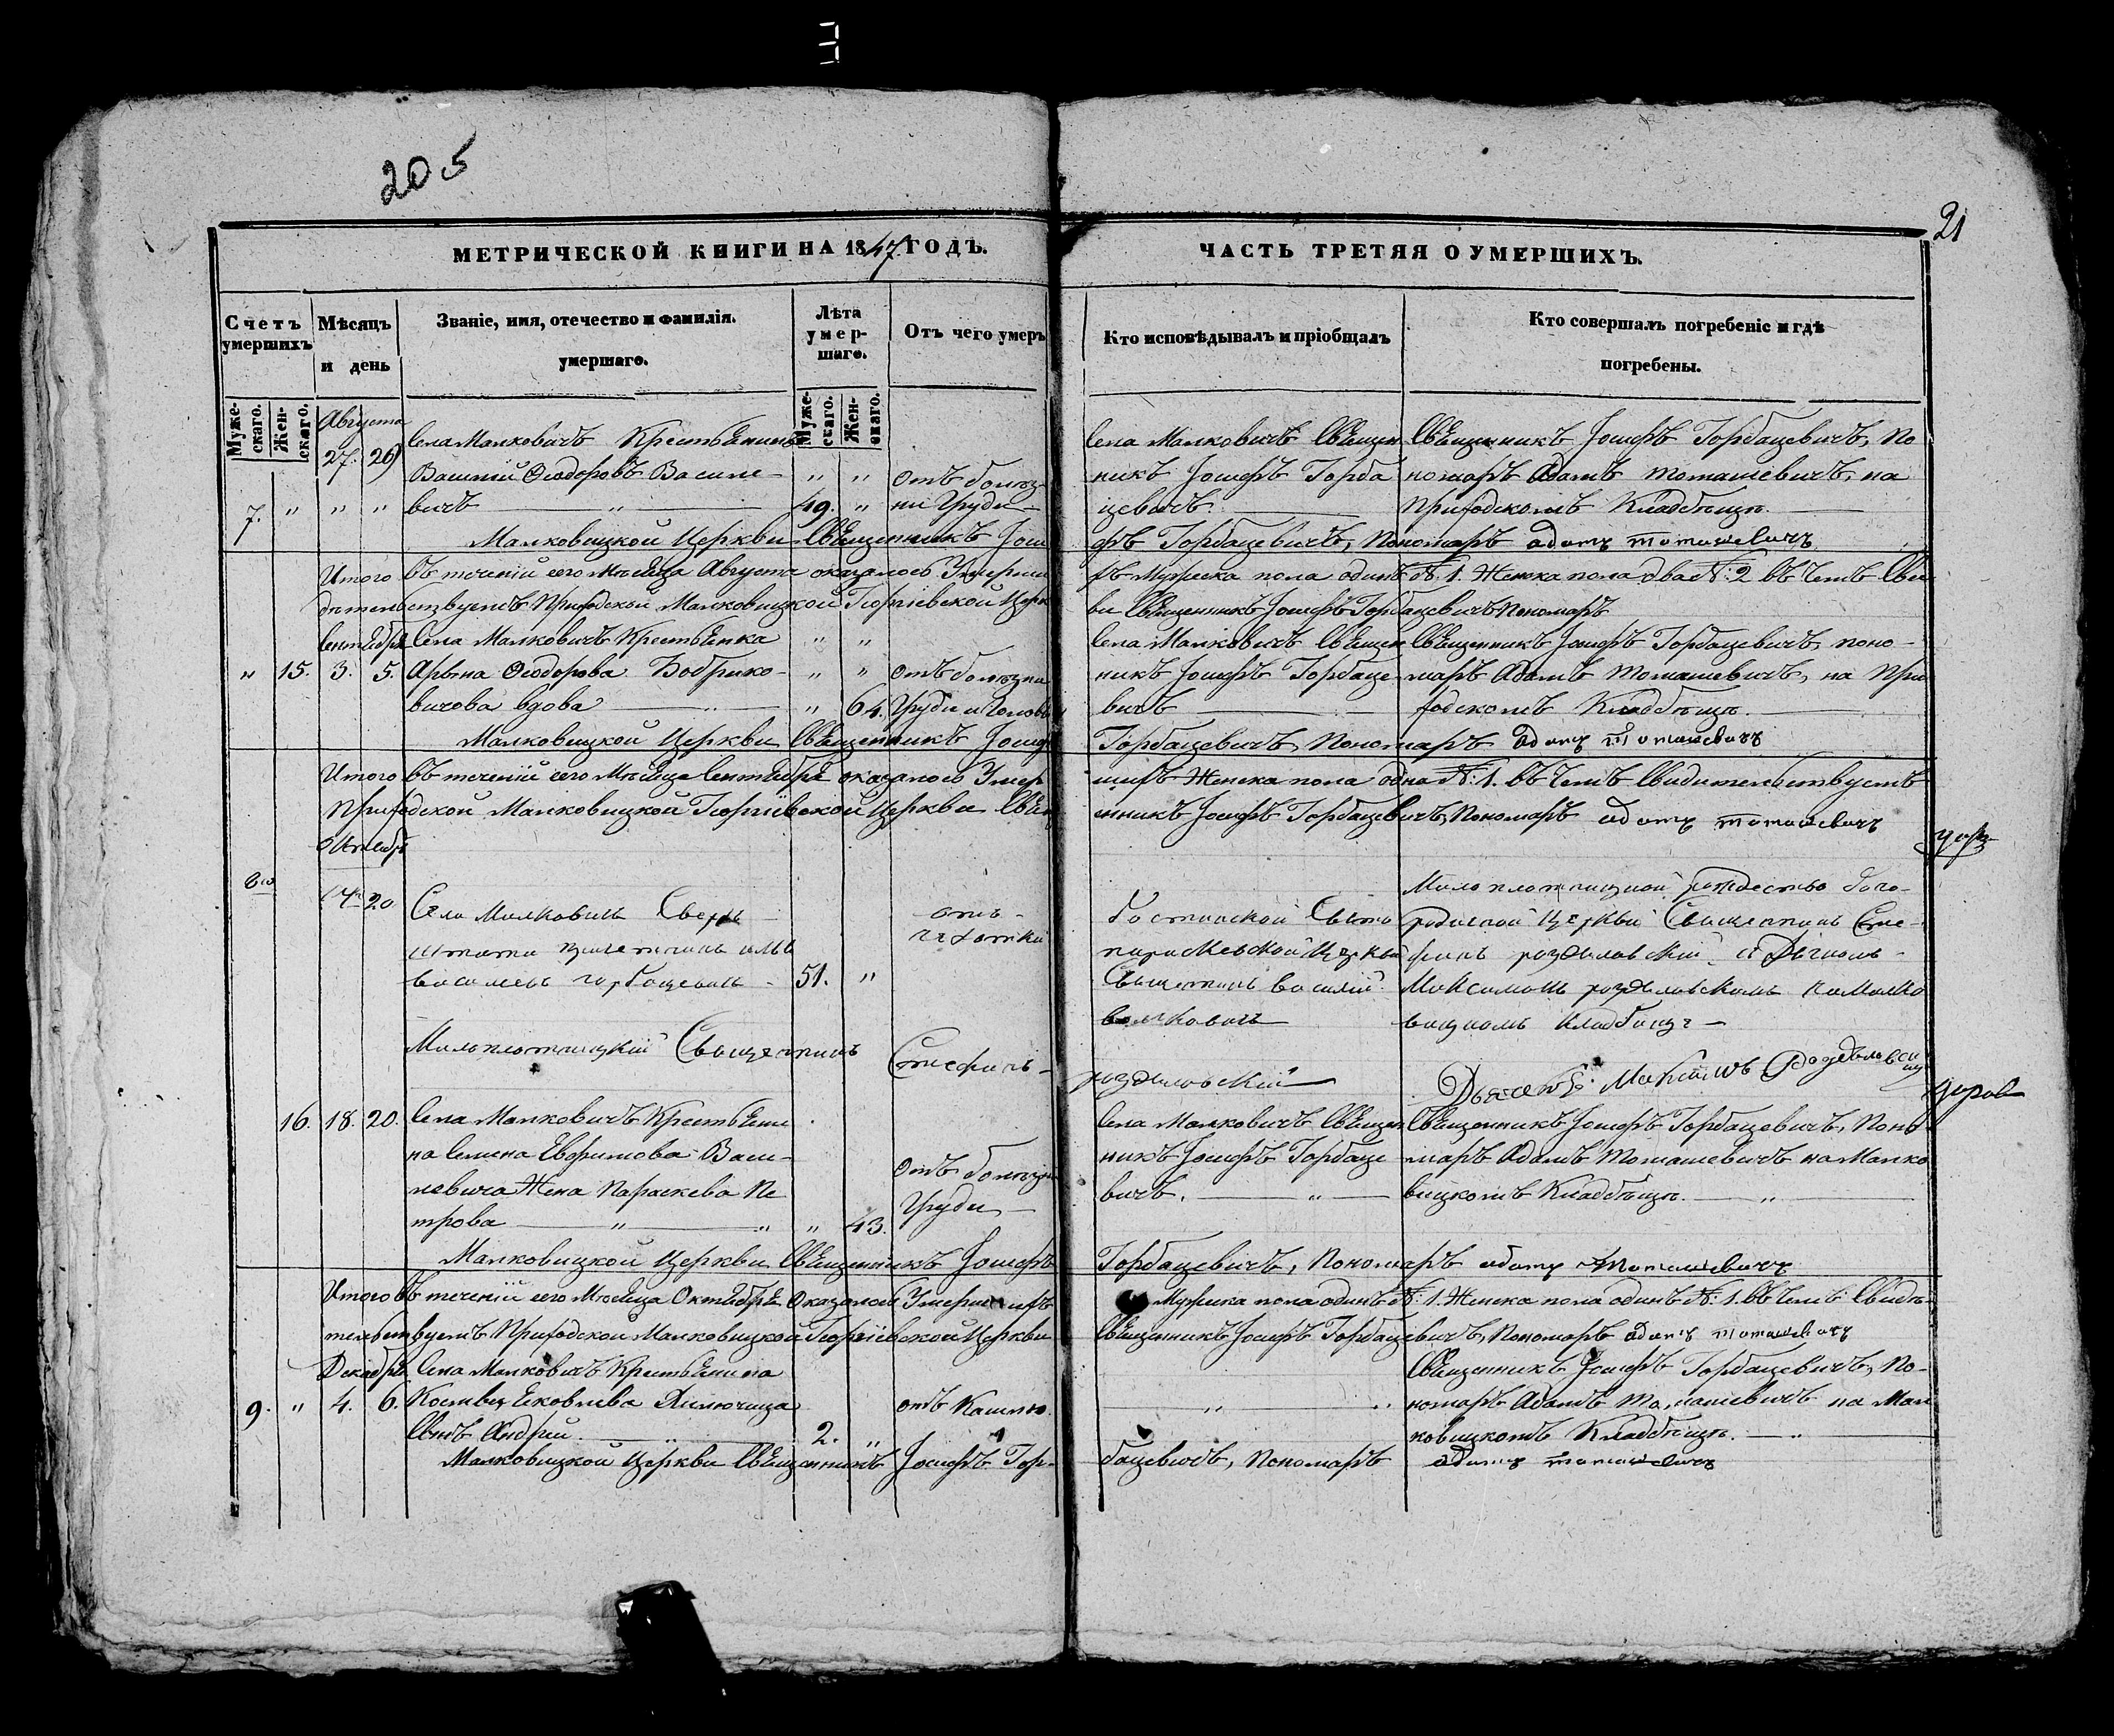 205
21
МЕТРИЧЕСКОЙ КНИГИ НА 1847 ГОДЪ.
ЧАСТЬ ТРЕТЯЯ О УМЕРШИХЪ.
Счетъ умершихъ
Мѣсяцъ и день
Званіе, имя, отечество и фамилія. умершаго.
Лѣта умер-шаго.
Отъ чего умеръ
Кто исповѣдывалъ и пріобщалъ
Кто совершалъ погребеніе и гдѣ погребены.
Муже-скаго.
Жен-скаго.
Муже-скаго.
Жен-скаго.
Августа
27. 29
Села Малковичъ Крестьянинъ
Василій Ѳеодоровъ Василе-
вичъ
7. " " " 49. "
отъ болѣз-
ни Груди
Села Малковичъ Священ
никъ Іосифъ Горба
цевичъ
Священникъ Іосифъ Горбацевичъ, По
номаръ Адамъ Томашевичъ, на
Приходскомъ Кладбищѣ.
Малковицкой Церкви Священникъ Іоси
фъ Горбацевичъ, Пономаръ адамъ томашевичъ
Итого въ теченій сего Мѣсяца Августа оказалось Умерши
хъ Мужеска пола одинъ №. 1. Женска пола два №: 2 въ чемъ Сви
дѣтельствуетъ Приходской Малковицкой Георгіевской Церк
ви Священникъ Іосифъ Горбацевичъ Пономаръ
Сентября
" 15. 3. 5.
Села Малковичъ Крестьянка
Арына Ѳеодорова Бобрико-
вичова вдова
" 64.
отъ болѣзни
Груди и Головы
Села Малковичъ Священ
никъ Іосифъ Горбаце
вичъ
Священникъ Іосифъ Горбацевичъ, поно-
маръ Адамъ Томашевичъ, на При
ходскомъ Кладбищѣ.
Малковицкой Церкви Священникъ Іосиф
Горбацевичъ, Пономаръ адамъ томашевичъ
Итого въ теченій сего Мѣсяца Сентября оказалось Умер
шихъ Женска пола одна №: 1. въ чемъ Свидительствуетъ
Приходской Малковицкой Георгіевской Церкви Свящ
енникъ Іосифъ Горбацевичъ, Пономаръ адамъ томашевичъ
Октября
20
Села Малковичъ Сверхъ
штата
горбацевичъ
51. "
отъ
чахотки
Священникъ василій
Священникъ Сте-
Священникъ
Стефанъ
16. 18. 20.
Села Малковичъ Крестьяни
на Семена Евфимова Васи-
левича Жена Параскева Пе
трова
" 43.
Отъ болѣзн
Груди
Села Малковичъ Священ
никъ Іосифъ Горбаце
вичъ.
Священникъ Іосифъ Горбацевичъ, Поно
маръ Адамъ Томашевичъ на Малко
вицкомъ Кладбищѣ.
Малковицкой Церкви Священникъ Іосифъ
Горбацевичъ, Пономаръ адамъ томашевичъ
Итого въ теченій сего Мѣсяца Октября Оказалось Умершихъ
Мужска пола одинъ №: 1. Женска пола одинъ №: 1. въ чемъ Свидѣ-
тельствуетъ Приходской Малковицкой Георгіевской Церкви
Священникъ Іосифъ Горбацевичъ, Пономаръ адамъ томашевичъ
Декабря
9. " 4. 6.
Села Малковичъ Крестьянина
Сынъ Андрій
2. "
отъ Кашлю.
Священникъ Іосифъ Горбацевичъ, По-
номаръ Адамъ Томашевичъ на Мал
ковицкомъ Кладбищѣ.
Малковицкой Церкви Священникъ Іосифъ Гор-
бацевичъ, Пономаръ адамъ томашевичъ